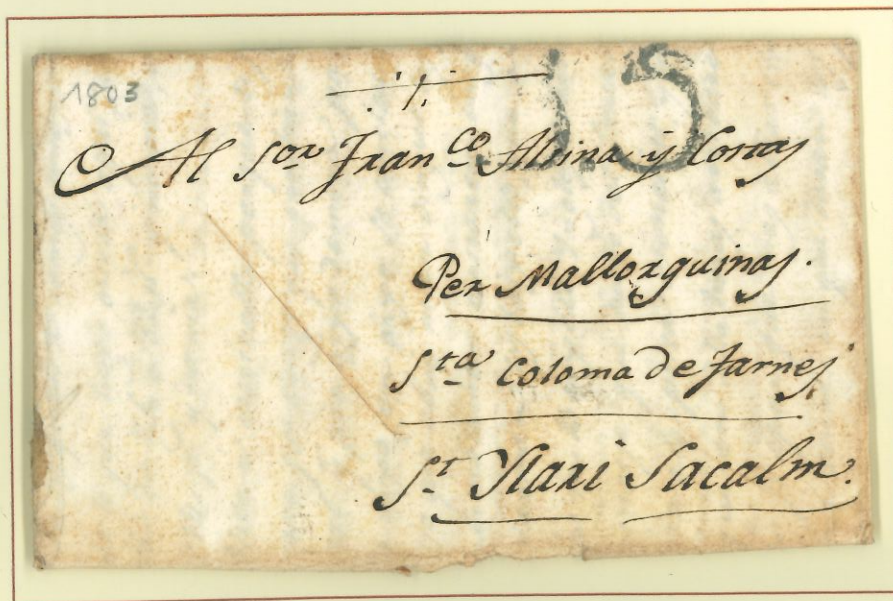 1803
Al Sor Franco Alsina y Cortas
Per Mallorquinas.
Sta Coloma de Farnes
St Ylari Sacalm.